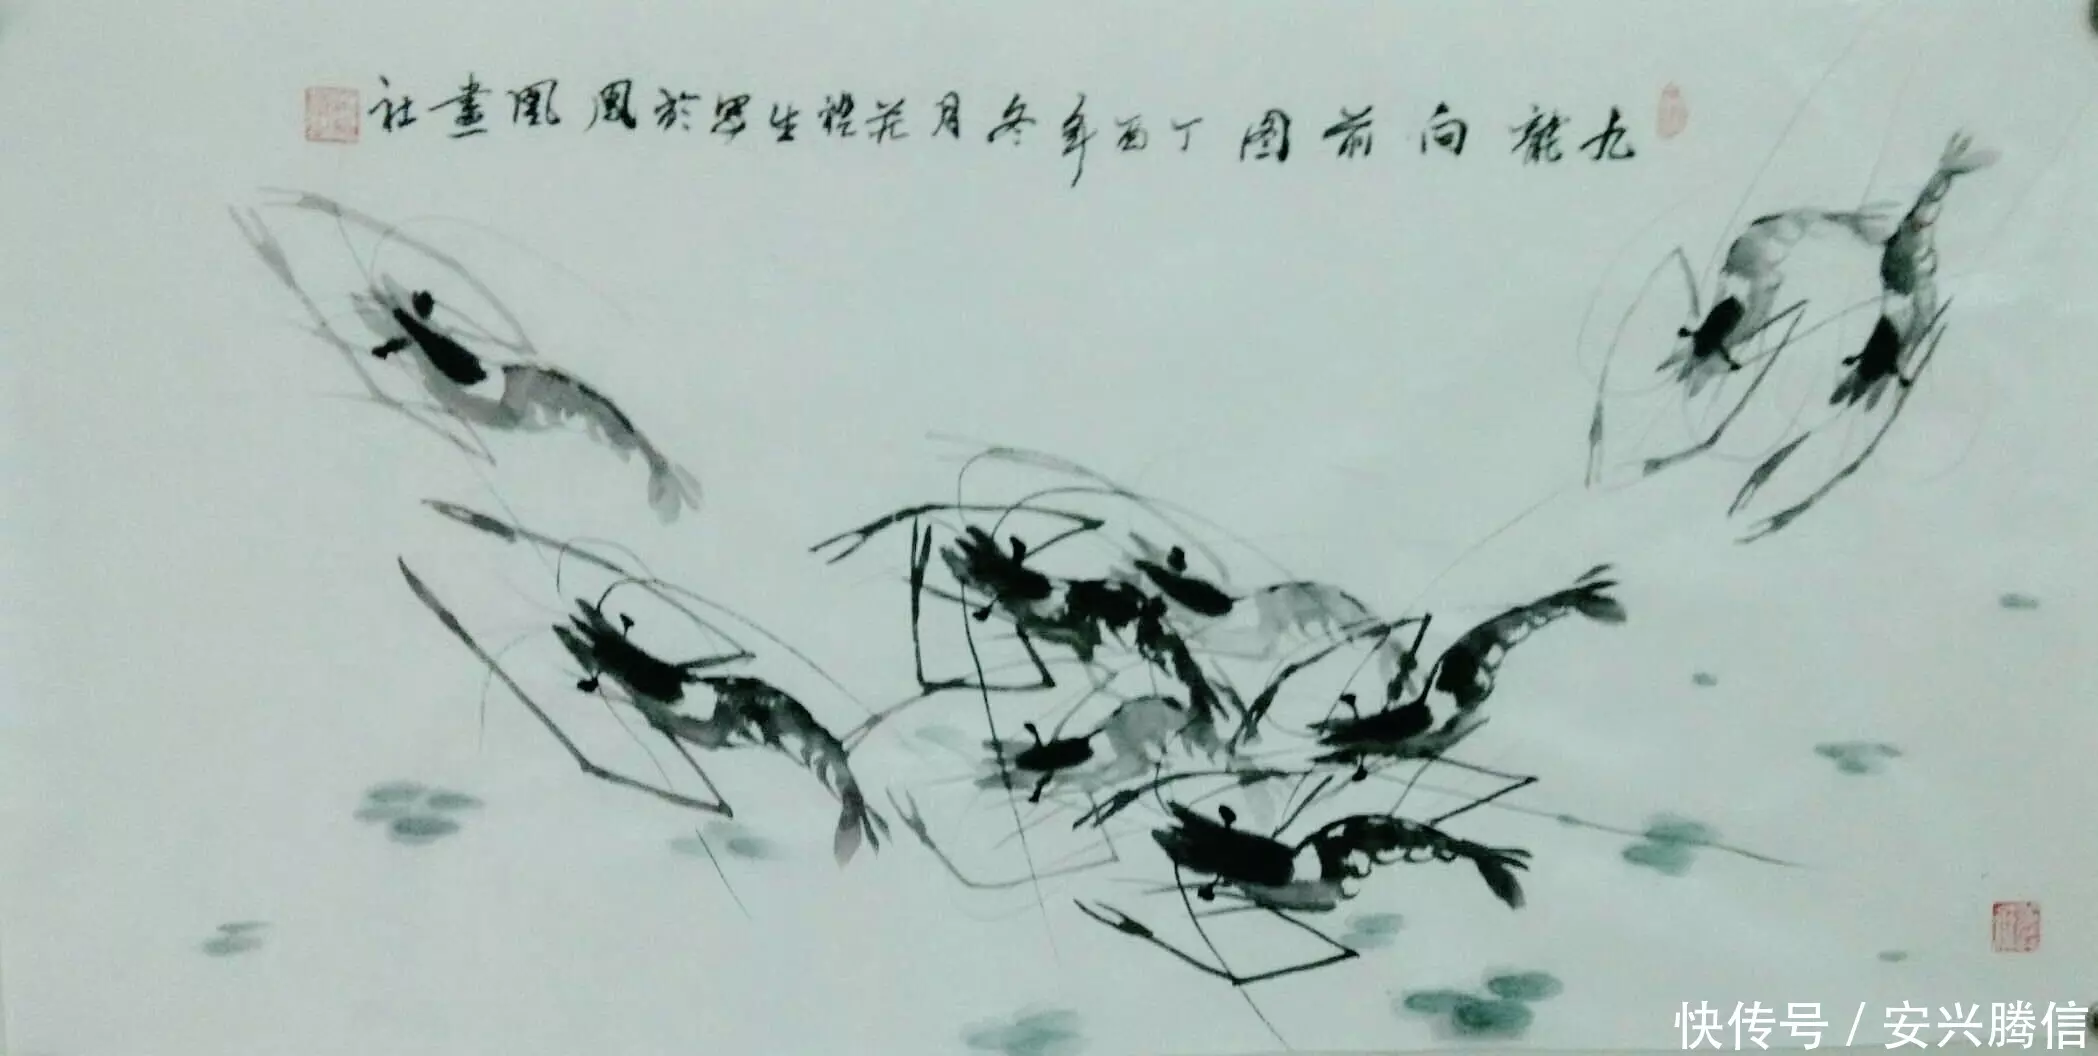 九龍向前图丁酉年冬月 生 於鳳凰畫社
快传号 / 安兴腾信